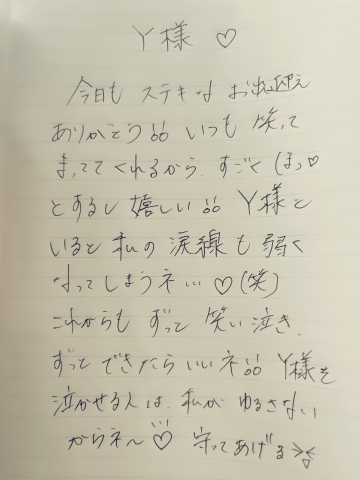 Y様 ♡
今日も ステキな お出迎え
ありがとう!! いつも 笑って
まっててくれるから、すごく (ほっ♡
とするし 嬉しい!! Y様と
いると 私の 涙線も 弱く
なってしまうネ… ♡ (笑)
これからも ずっと 笑い泣き、
ずっと できたら いいネ!! Y様を
泣かせる人は、私が ゆるさない
からネ〜 ♡ 守ってあげる